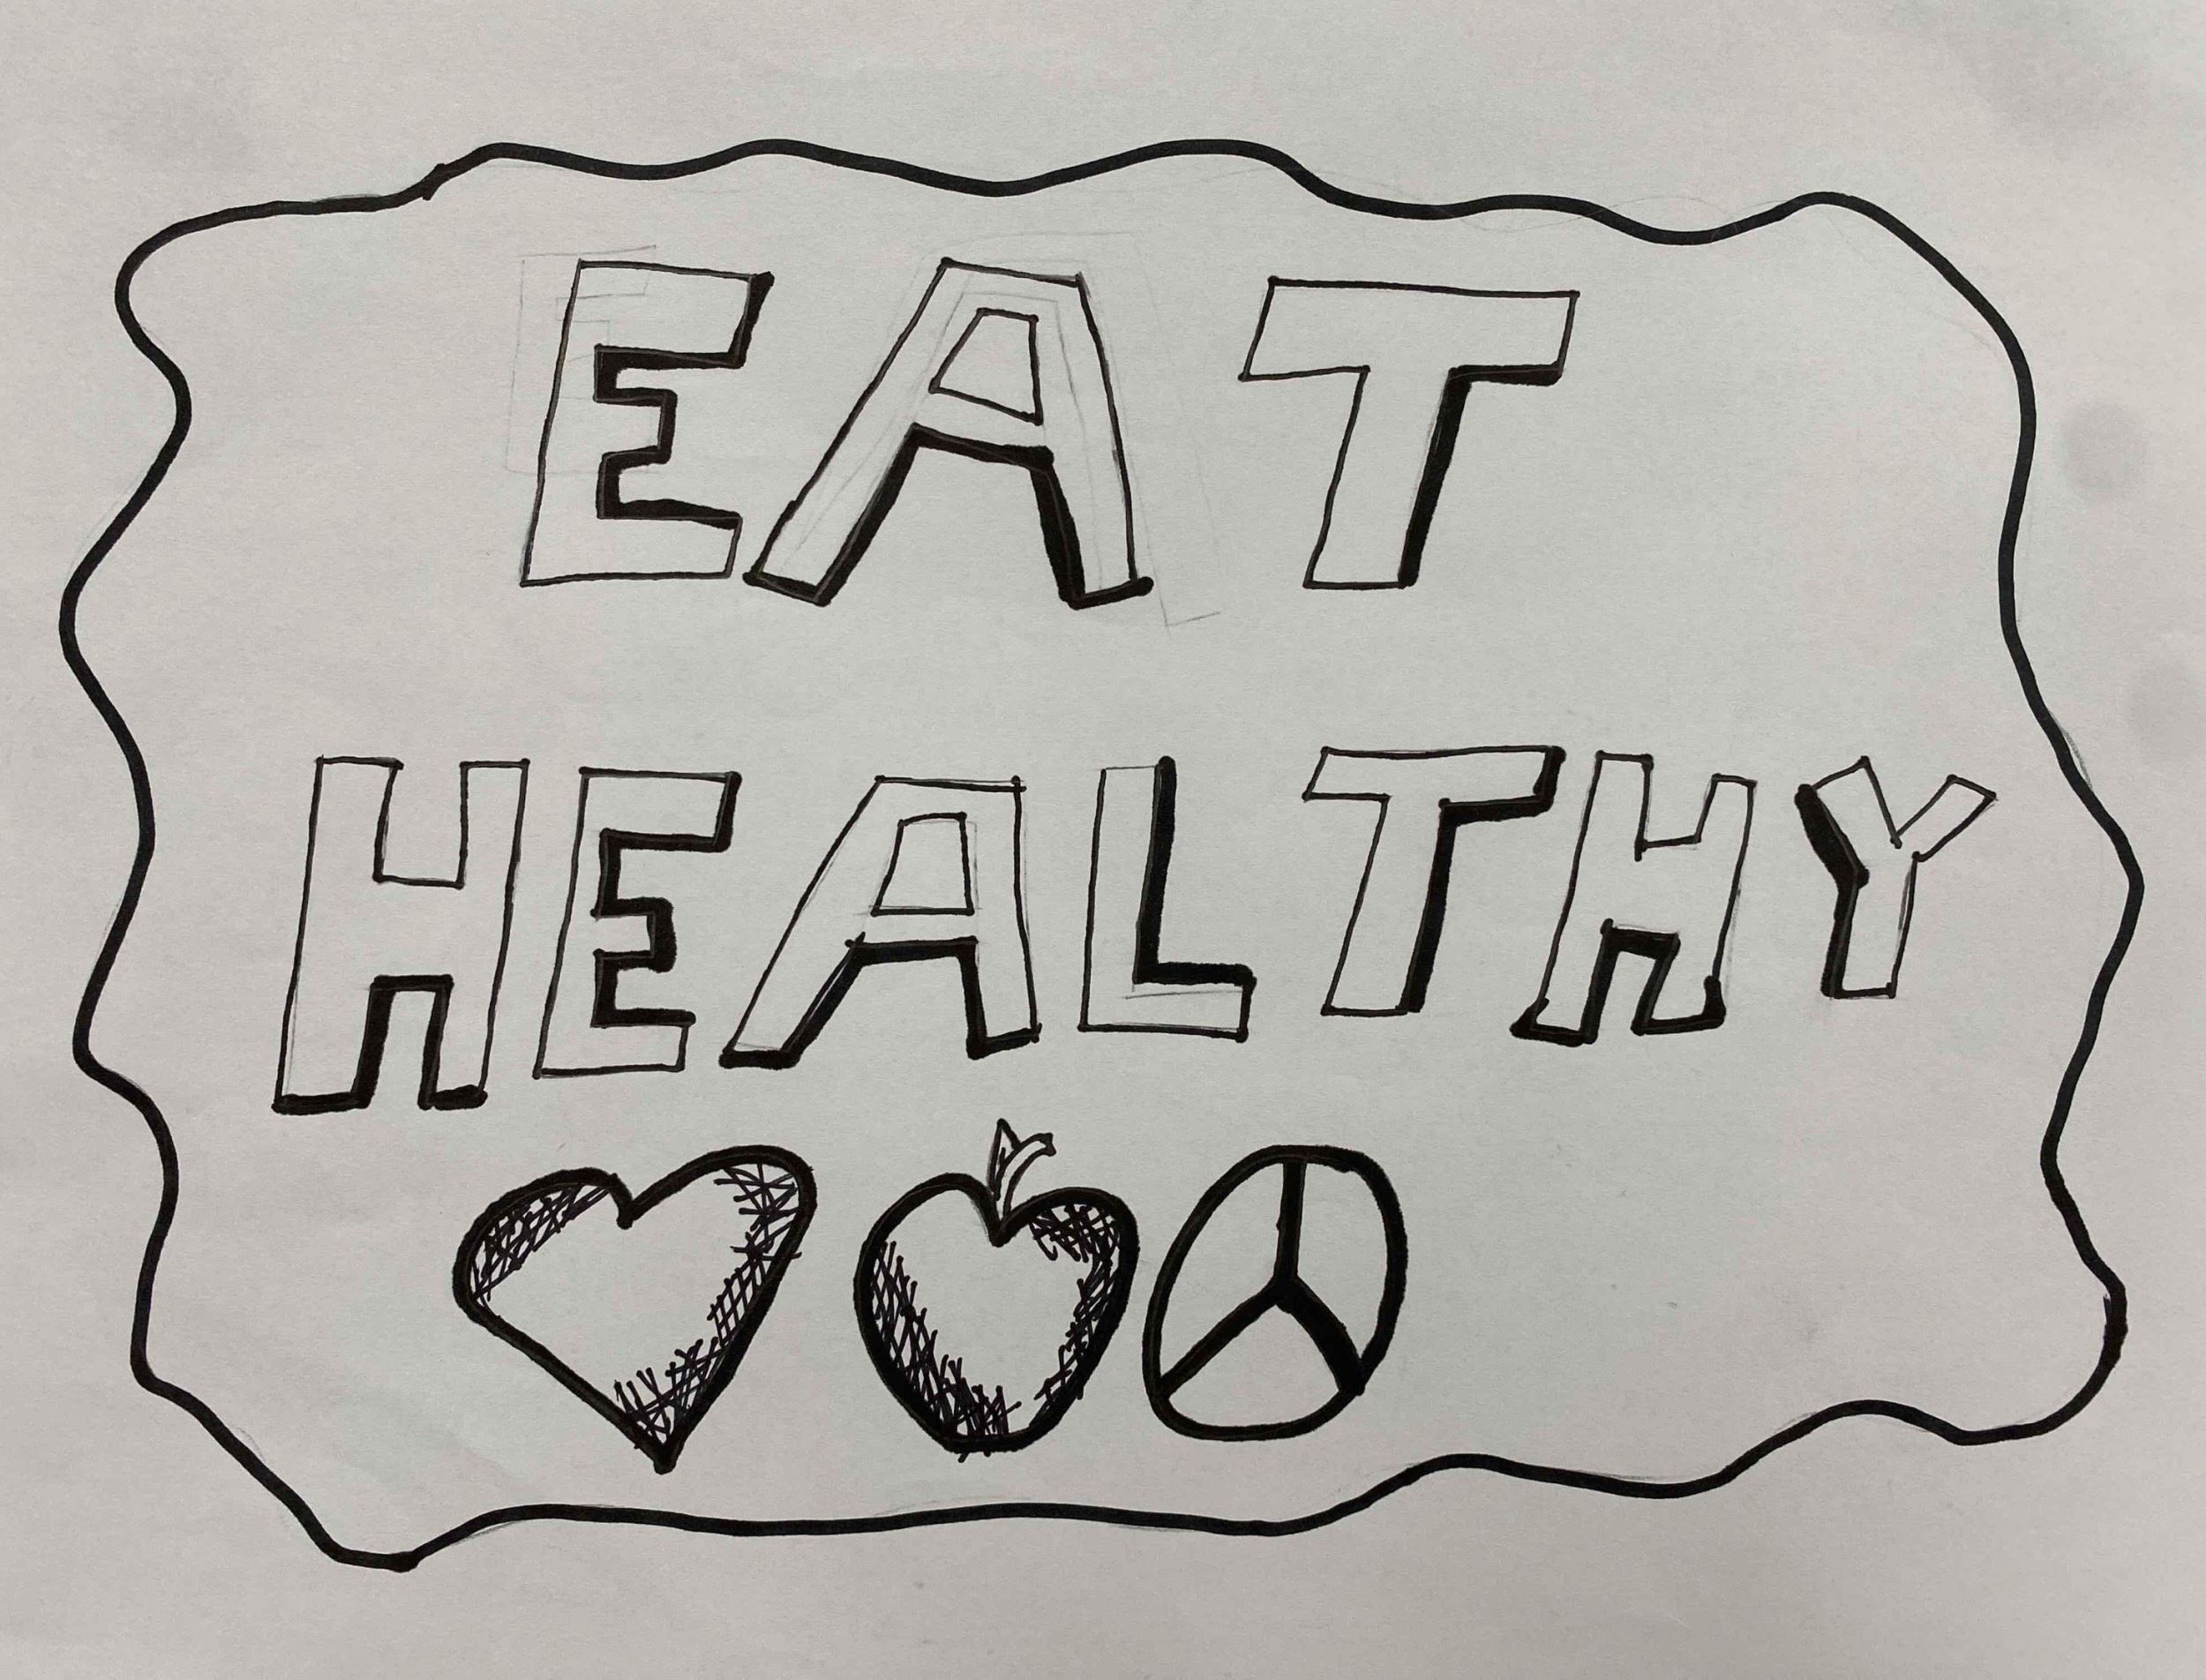 EAT
HEALTHY